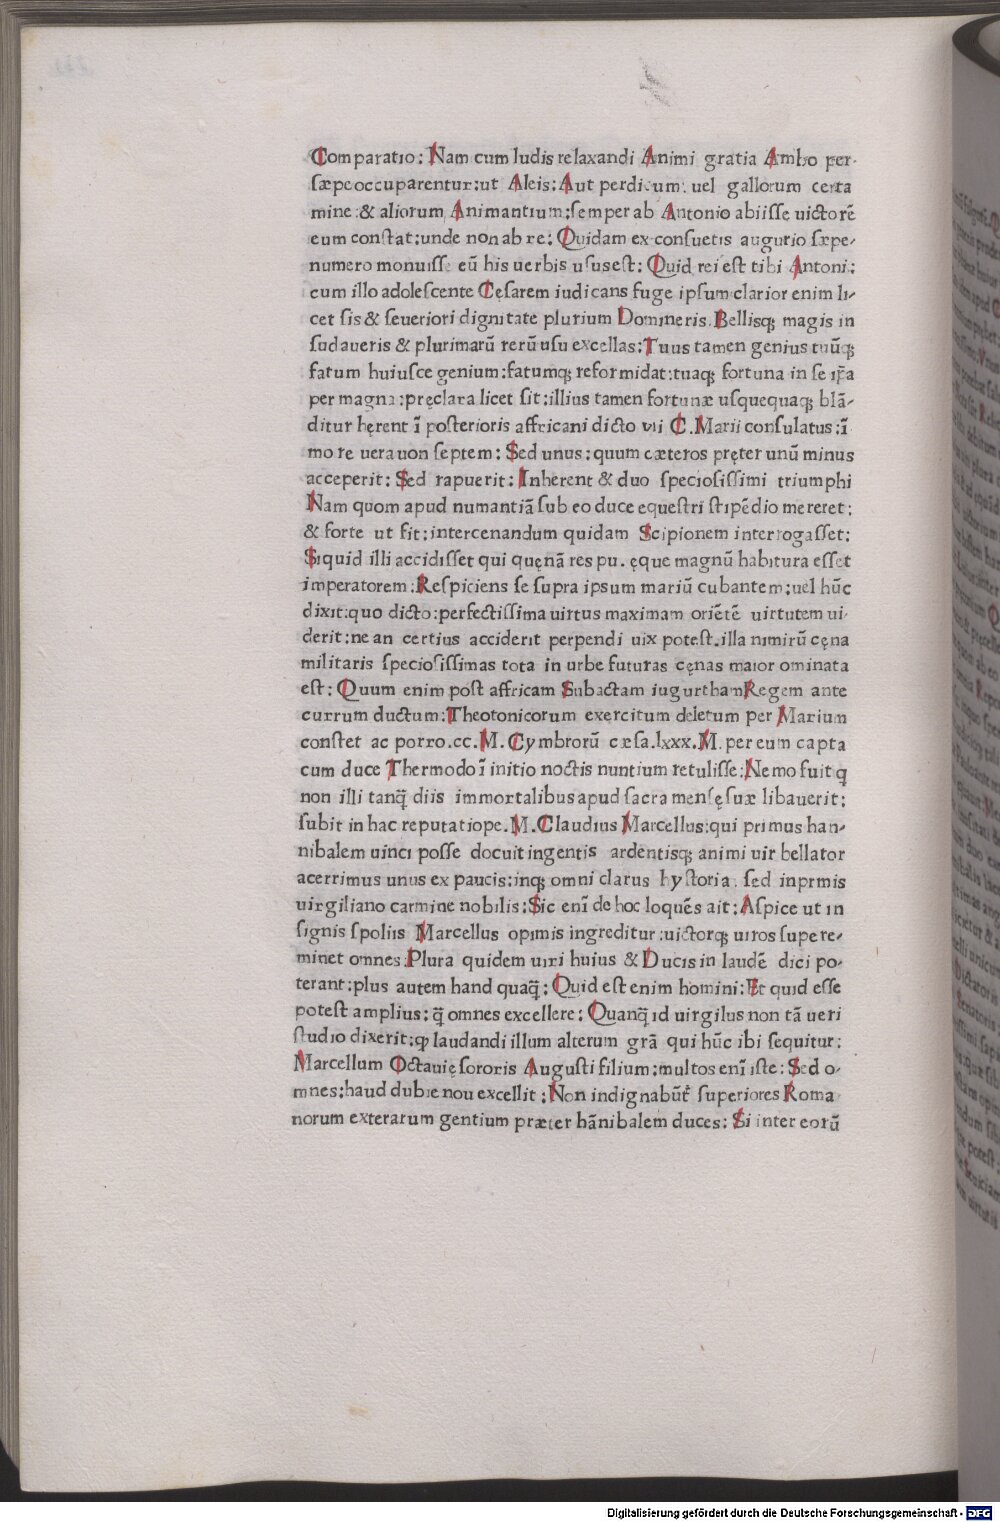 Comparatio: Nam cum ludis relaxandi Animi gratia Ambo per-
sæpe occuparentur: ut Aleis: Aut perdicum: uel gallorum certa
mine: & aliorum Animantium: semper ab Antonio abiisse uictorē
eum constat: unde non ab re: Quidam ex consuetis augurio sæpe-
numero monuisse eū his uerbis usus est: Quid rei est tibi Antoni:
cum illo adolescente Cęsarem iudicans fuge ipsum clarior enim li-
cet sis & seueriori dignitate plurium Domineris Bellisqꝫ magis in
sudaueris & plurimarū rerū usu excellas: Tuus tamen genius tuūqꝫ
fatum huiusce genium: fatumqꝫ reformidat: tuaqꝫ fortuna in se ip̄a
per magna: pręclara licet sit: illius tamen fortunæ usquequaqꝫ blā-
ditur hęrent ī posterioris affricani dicto vii C. Marii consulatus: ī
mo re uera uon septem: Sed unus: quum cæteros pręter unū minus
acceperit: Sed rapuerit: Inherent & duo speciosissimi triumphi
Nam quom apud numantiā sub eo duce equestri stipēdio mereret:
& forte ut fit: intercenandum quidam Scipionem interrogasset:
Siquid illi accidisset qui quęnā res pu. ęque magnū habitura esset
imperatorem: Respiciens se supra ipsum mariū cubantem: uel hūc
dixit: quo dicto: perfectissima uirtus maximam oriētē uirtutem ui-
derit: ne an certius acciderit perpendi uix potest. illa nimirū cęna
militaris speciosissimas tota in urbe futuras cęnas maior ominata
est: Quum enim post affricam Subactam iugurtham Regem ante
currum ductum: Theotonicorum exercitum deletum per Marium
constet ac porro. cc. M. Cymbrorū cæsa. lxxx. M. per eum capta
cum duce Thermodo ī initio noctis nuntium retulisse: Nemo fuit q̄
non illi tanq̄ diis immortalibus apud sacra mensę suæ libauerit:
subit in hac reputatiope. M. Claudius Marcellus: qui primus han-
nibalem uinci posse docuit ingentis ardentisqꝫ animi uir bellator
acerrimus unus ex paucis: inqꝫ omni clarus hystoria. sed inprmis
uirgiliano carmine nobilis: Sic enī de hoc loquēs ait: Aspice ut in
signis spoliis Marcellus opimis ingreditur: uictorqꝫ uiros supere-
minet omnes: Plura quidem uiri huius & Ducis in laudē dici po-
terant: plus autem hand quaq̄: Quid est enim homini: Et quid esse
potest amplius: q̄ omnes excellere: Quanq̄ id uirgilus non tā ueri
studio dixerit: ꝙ laudandi illum alterum grā qui hūc ibi sequitur:
Marcellum Octauię sororis Augusti filium: multos enī iste: Sed o-
mnes: haud dubie nou excellit: Non indignabūt̄ superiores Roma
norum exterarum gentium præter hānibalem duces: Si inter eorū
Digitalisierung gefördert durch die Deutsche Forschungsgemeinschaft - DFG